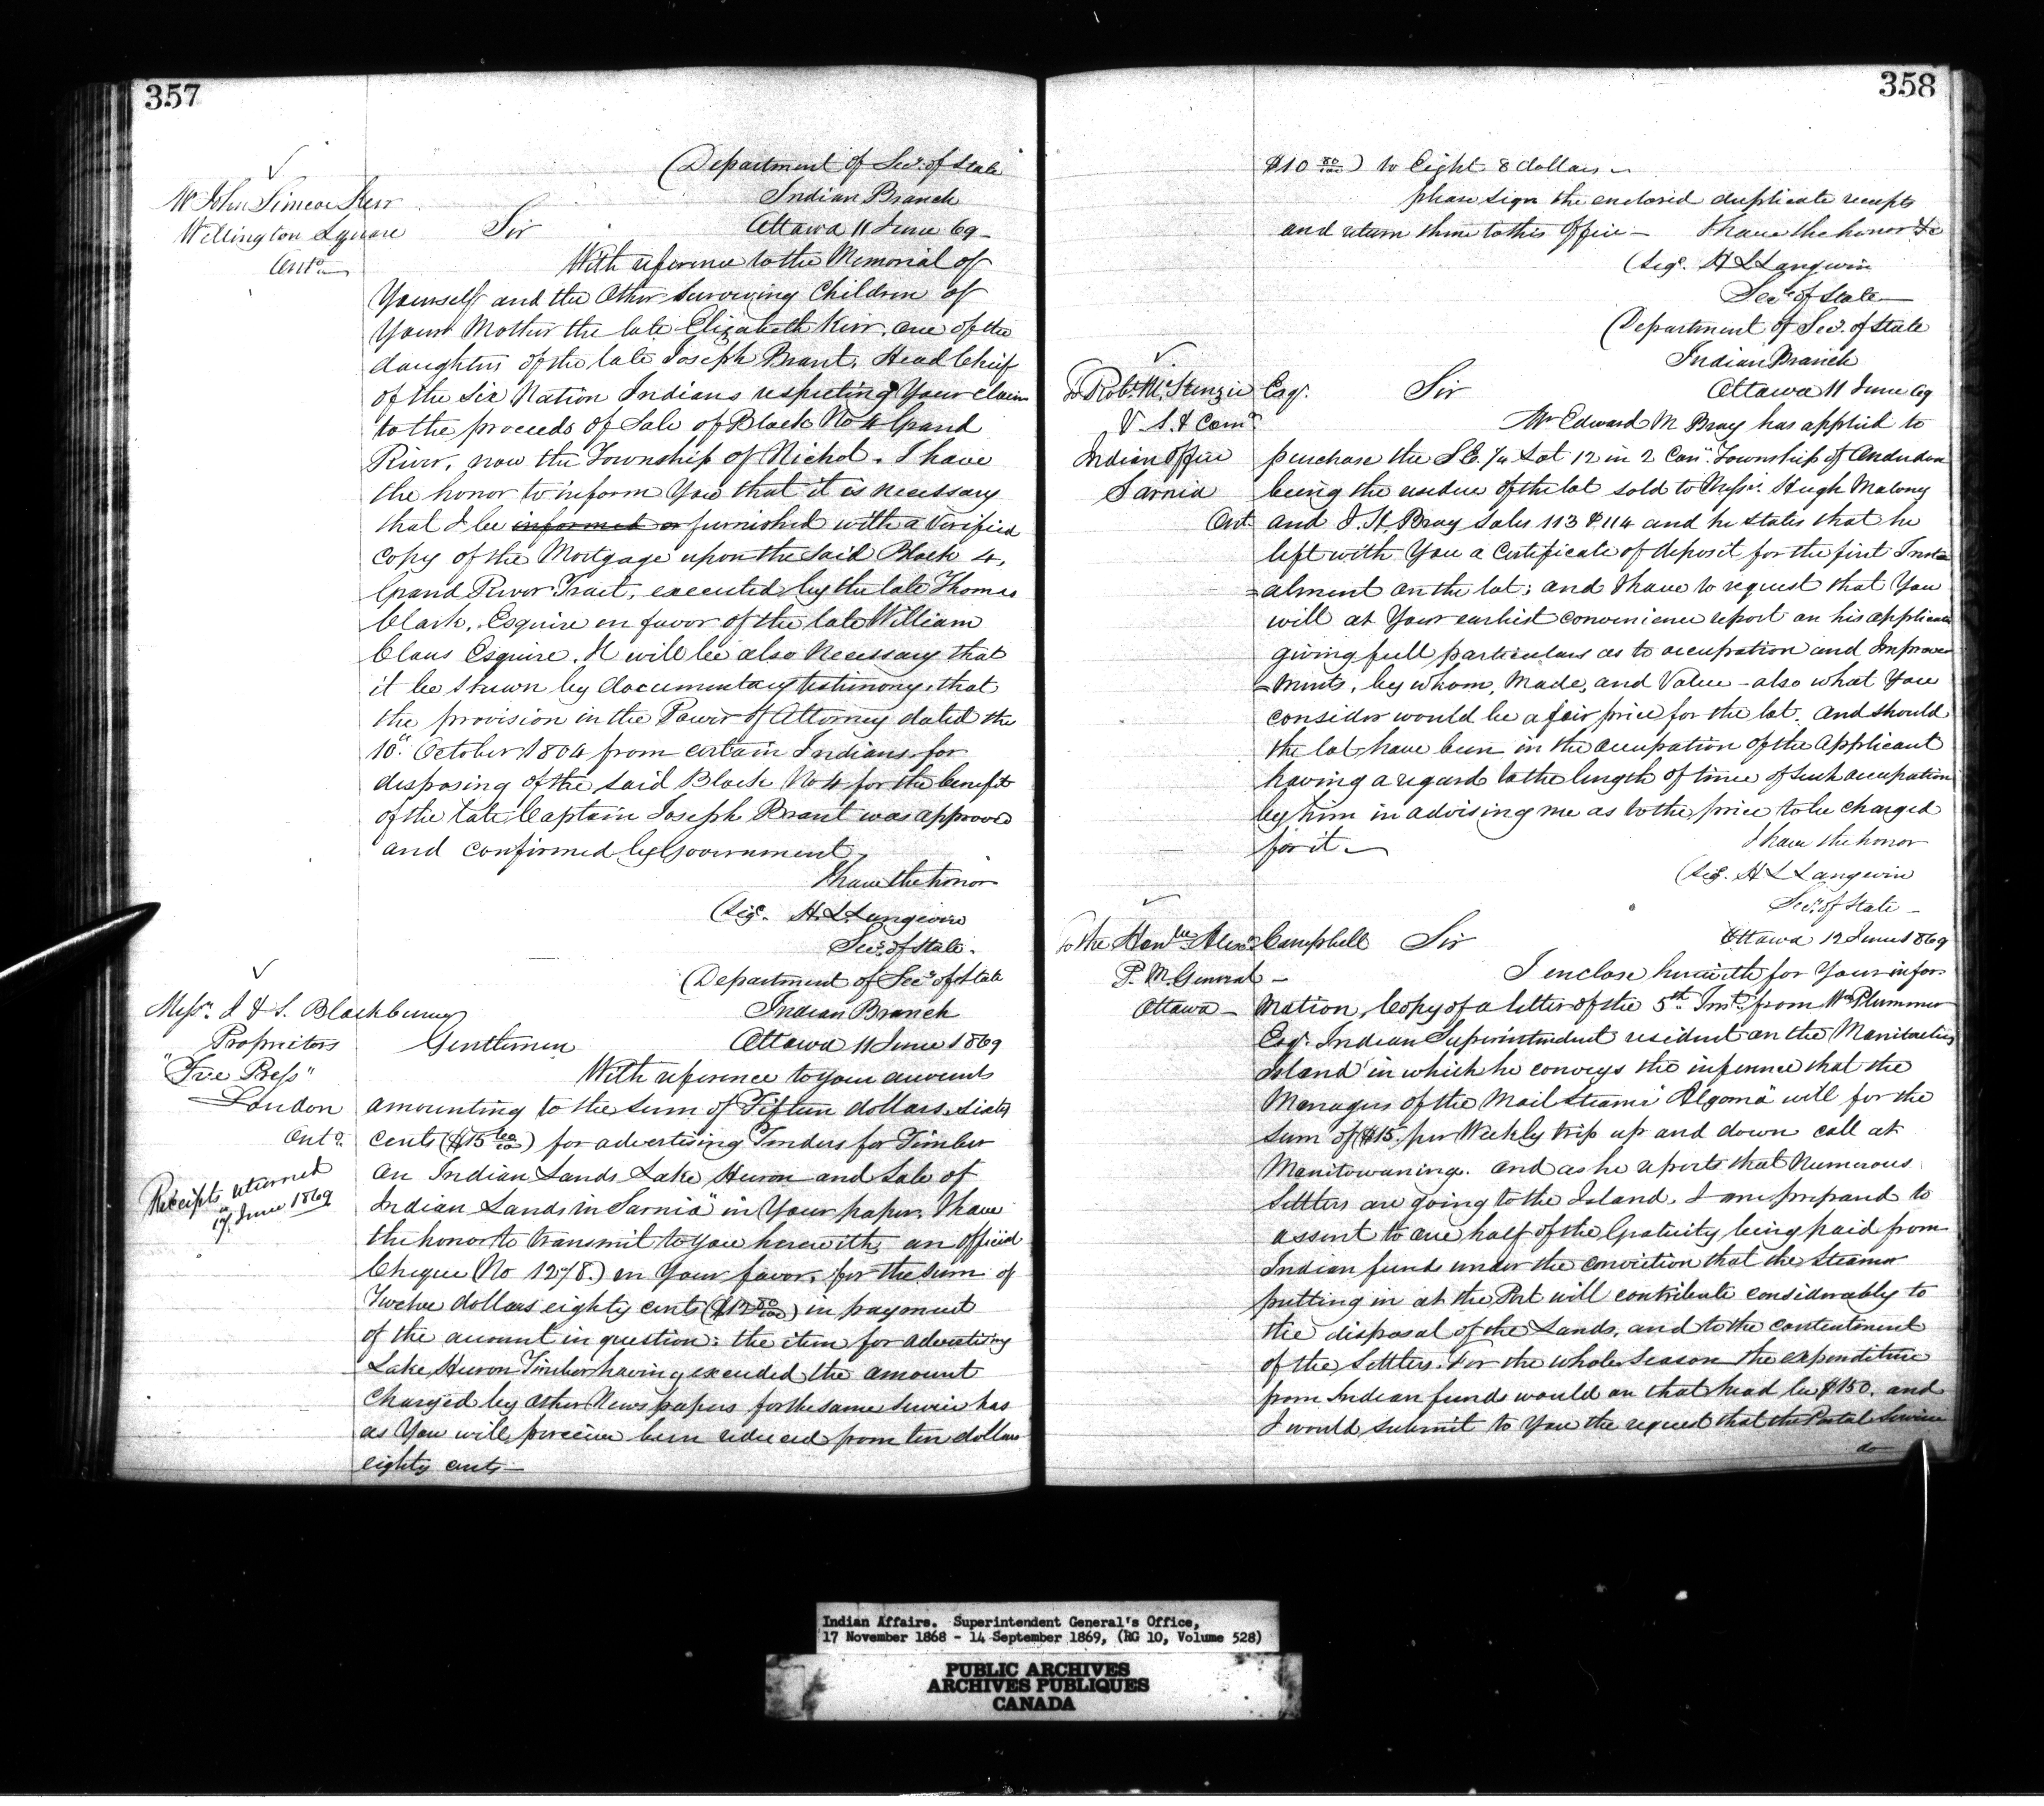 357
(Department of Secy. of State
Indian Branch
Ottawa 11 June 69 -
Mr John Simcoe Kerr
Wellington Square
Onto.
Sir
With reference to the Memorial of
Yourself and the other surviving Children of
Your Mother the late Elizabeth Kerr, one of the
daughters of the late Joseph Brant, Head Chief
of the Six Nation Indians respecting Your claim
to the proceeds of Sale of Block No 4 Grand
River, now the Township of Nichol. I have
the honor to inform You that it is necessary
that I be informed or furnished with a verified
copy of the Mortgage upon the said Block 4,
Grand River Tract, executed by the late Thomas
Clark, Esquire in favor of the late William
Claus Esquire. It will be also necessary that
it be shewn by documentary testimony, that
the provision in the Power of Attorney dated the
10th October 1804 from certain Indians for
disposing of the said Block No 4 for the benefit
of the late Captain Joseph Brant was approved
and confirmed by Government.
I have the honor
(Sigd. H. L. Langevin
Secy. of State.
(Department of Secy. of State
Indian Branch
Ottawa 11 June 1869
Messrs. J & S. Blackburn
Proprietors
"Free Press"
London
Onto.
Receipts returned
17 June 1869
Gentlemen
With reference to your accounts
amounting to the sum of Fifteen dollars sixty
cents ($15 60/100) for advertising Tenders for Timber
on Indian Lands Lake Huron and Sale of
Indian Lands in Sarnia" in Your paper. I have
the honor to transmit to you herewith, an official
Cheque (No 1278.) in Your favor, for the sum of
Twelve dollars eighty cents ($12 80/100) in payment
of the account in question: the item for advertising
Lake Huron Timber having exceeded the amount
charged by other Newspapers for the same service has
as You will perceive been reduced from ten dollars
eighty cents —
358
$10 80/100) to Eight 8 dollars —
please sign the enclosed duplicate receipts
and return them to this Office — I have the honor &c
(Sigd. H L Langevin
Secy. of State —
(Department of Secy. of State
Indian Branch
Ottawa 11 June 69
To Robt. McKenzie Esqr.
V. S. & Comr.
Indian Office
Sarnia
Ont
Sir
Mr Edward M Bray has applied to
purchase the S E. 1/4 Lot 12 in 2 Con. Township of Anderdon
being the residue of the lot sold to Messrs. Hugh Malony
and J. H. Bray sales 113 & 114 and he states that he
left with You a Certificate of deposit for the first Inst-
-alment on the lot; and I have to request that You
will at Your earliest convenience report on his application
giving full particulars as to occupation and Improve-
-ments, by whom, Made, and Value - also what You
consider would be a fair price for the lot. And should
the lot have been in the occupation of the applicant
having a regard to the length of time of such occupation
by him in advising me as to the price to be charged
for it —
I have the honor
(Sigd. H L Langevin
Secy. of State -
Ottawa 12 June 1869
To the Honble. Alexr. Campbell
P. M. General -
Ottawa -
Sir
I enclose herewith for Your infor-
mation, Copy of a letter of the 5th Inst. from Wm Plummer
Esqr. Indian Superintendent resident on the Manitoulin
Island in which he conveys the inference that the
Managers of the Mail Steamer "Algoma" will for the
sum of $15. per Weekly trip up and down call at
Manitowaning. and as he reports that Numerous
Settlers are going to the Island. I am prepared to
assent to one half of the Gratuity being paid from
Indian funds under the conviction that the Steamer
putting in at the Port will contribute considerably to
the disposal of the Lands, and to the contentment
of the Settlers. For the whole Season the expenditure
from Indian funds would on that head be $150. and
I would submit to You the request that the Postal Service
do
Indian Affairs. Superintendent General's Office,
17 November 1868 - 14 September 1869, (RG 10, Volume 528)
PUBLIC ARCHIVES
ARCHIVES PUBLIQUES
CANADA